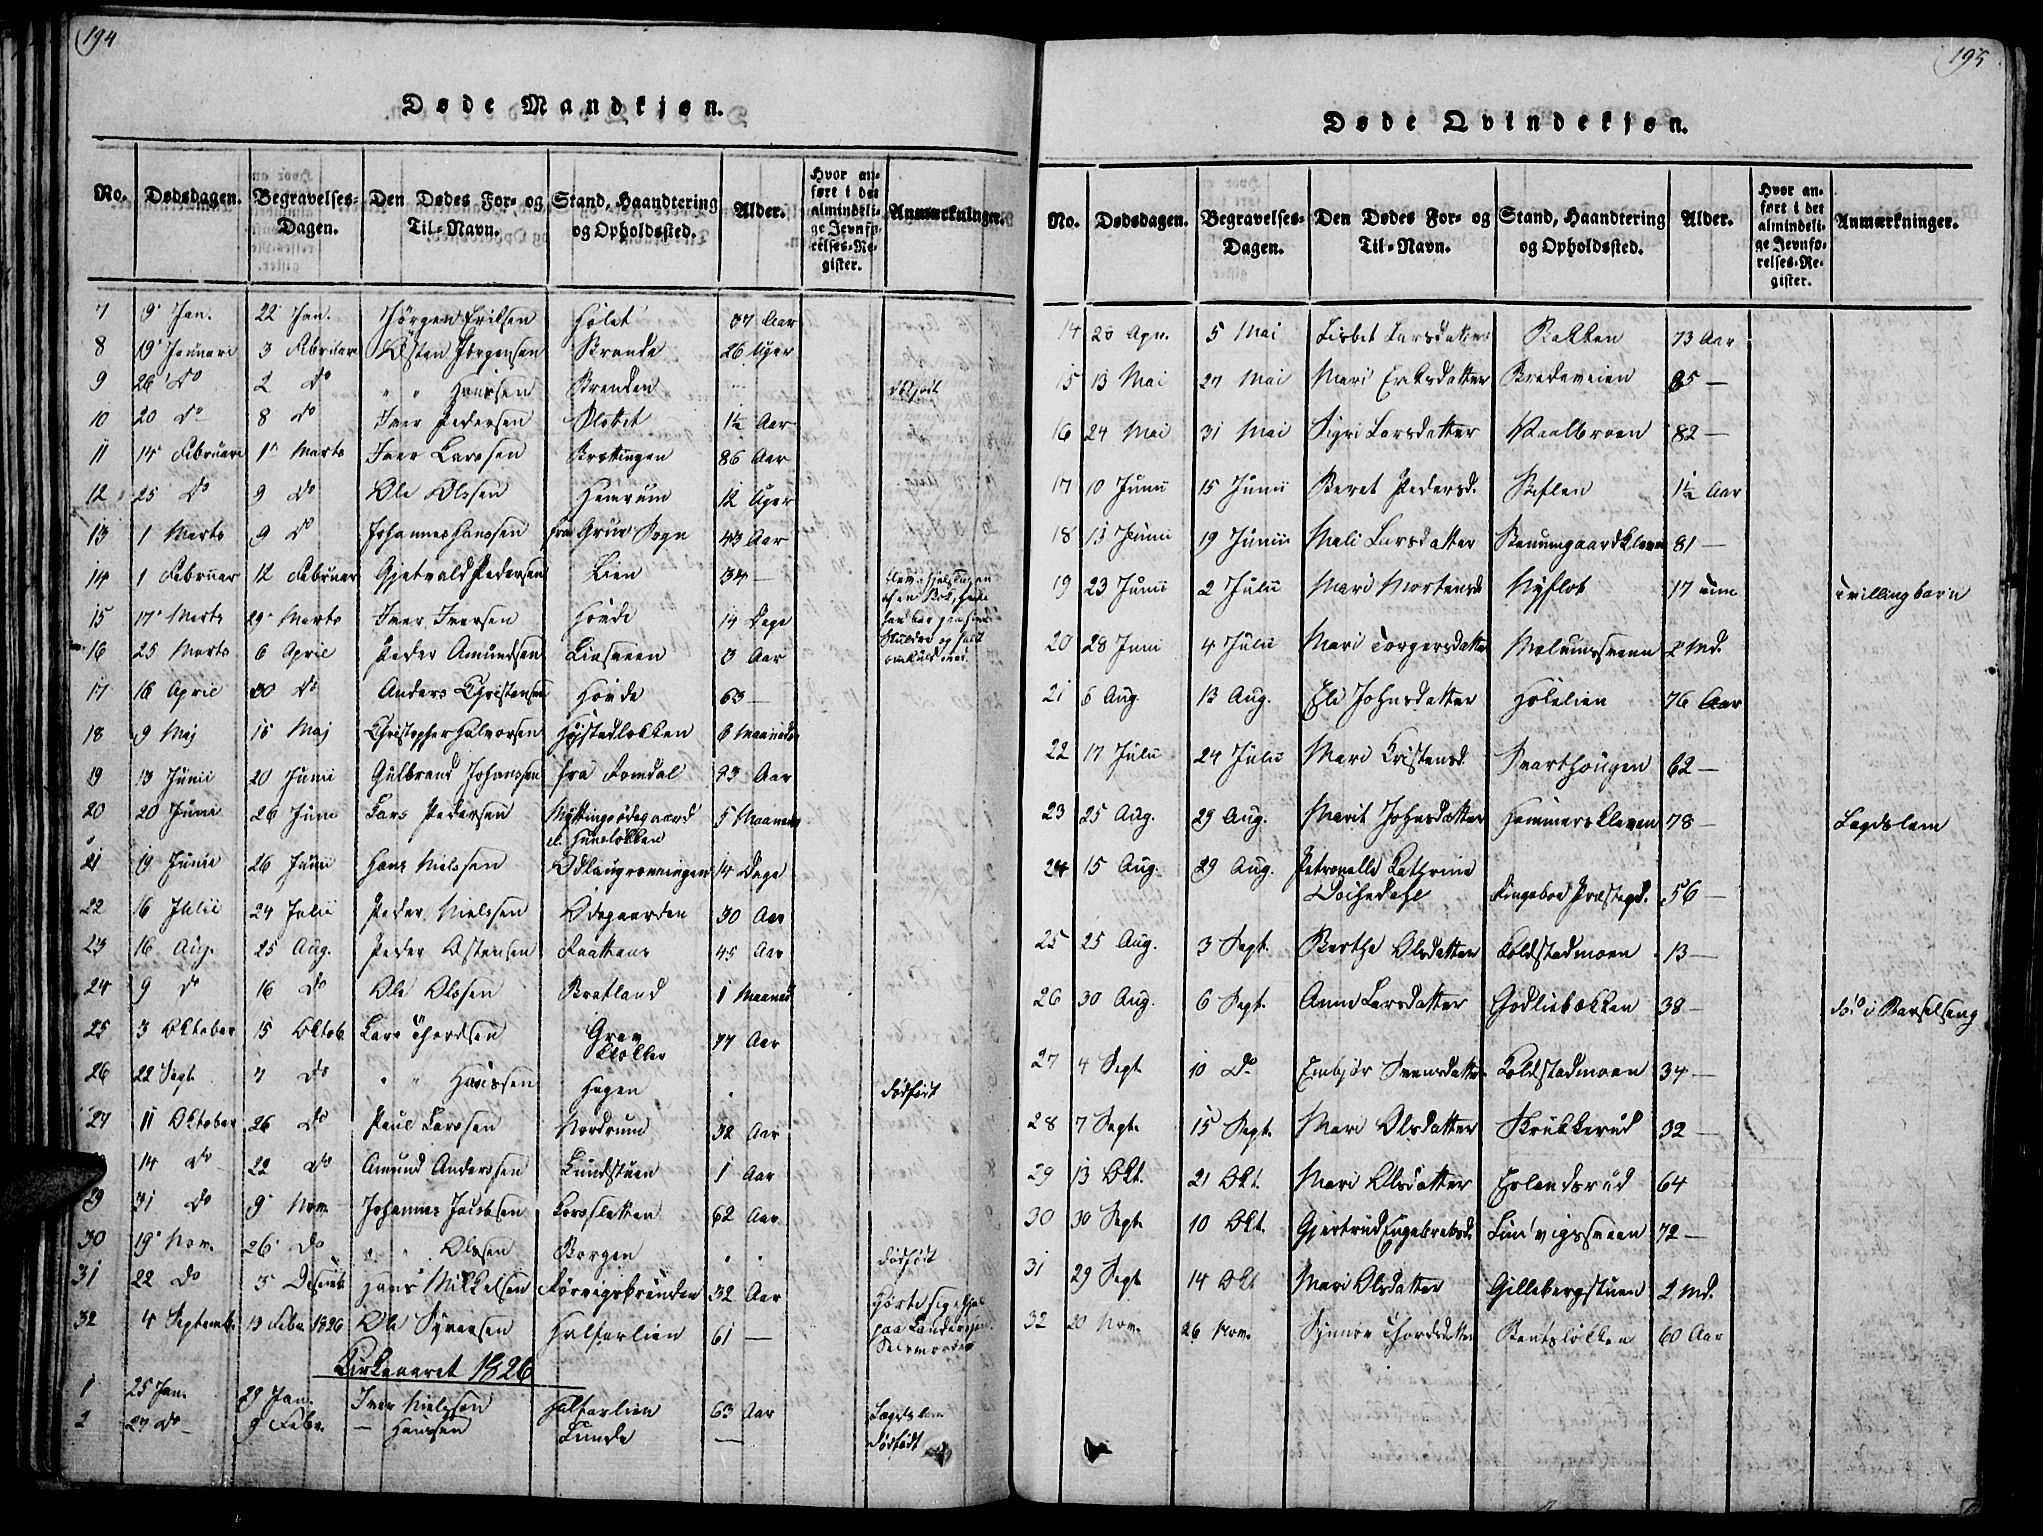 194
Døde Mandkjøn.
No. Dødsdagen. Begravelses-Dagen. Den Dødes For- og Til-Navn. Stand, Haandtering og Opholdssted. Alder. Hvor anført i det almindelige Jevnførelses-Register. Anmærkninger.
7 9 Jan. 22 Jan. Jørgen Erilsen Holet 37 Aar
8 19 Januari 3 Februar Østen Jørgensen 26 Uger
9 26 Do 2 Do " " Hansen Brenden dødfødt
10 20 Do 8 Do Iver Pedersen Slotet 1½ Aar
11 14 Februari 1 Marts Iver Larssen 86 Aar
12 25 Do 9 Do Ole Olssen 12 Uger
13 1 Marts 9 Do Johannes Hanssen fra Grue Sogn 43 Aar
14 1 Februar 12 Februar Gjetvald Pedersen Lien 34 —
15 17 Marts 29 Marts Iver Iversen Hovde 14 Dage
16 25 Marts 6 April Peder Amundsen 3 Aar
17 16 April 30 Do Anders Christensen Hovde 63 —
18 9 Maj 15 Maj Christopher Halvorsen 6 Maaneder
19 13 Junii 20 Junii Gulbrand Johanssen fra Romdal 93 Aar
20 20 Junii 26 Juni Lars Pedersen 5 Maaneder
21 19 Junii 26 Juni Hans Nielssen 14 Dage
22 16 Julii 24 Julii Peder Nielssen Ødegaarden 30 Aar
23 16 Aug. 25 Aug. Peder Østensen 45 Aar
24 9 do 16 Do Ole Olssen Bratland 1 Maaned
25 3 Oktober 15 Oktob. Lars Thordsen 77 Aar
26 22 Sept. 7 Do " " Hanssen Hagen dødfødt
27 11 Oktober 26 Do Paul Larssen Nordrum 32 Aar
14 do 22 Do Amund Anderssen Lundstuen 1 Aar
29 31 Do 9 Nov. Johannes Jacobsen Korssletten 62 Aar
30 19 Nov. 26 Do " " Olssen Borgen dødfødt
31 22 Do 5 Hans Mikkelsen 32 Aar
32 4 Septemb. 13 Febr. 1826 Ole Syversen Halfarlien 61 —
Kirkeaaret 1826
1 25 Jan. 29 Jan. Iver Nielssen Halfarlien 63 Aar Lægdslem
2 27 Do 9 Febr. — Hanssen Lunde — dødfødt
195
Døde Qvindekjøn.
No. Dødsdagen. Begravelses-Dagen. Den Dødes For- og Til-Navn. Stand, Haandtering og Opholdssted. Alder. Hvor anført i det almindelige Jevnførelses-Register. Anmærkninger.
14 28 Apr. 5 Mai Lisbet Larsdatter Bakken 73 Aar
15 13 Mai 27 Mai Mari Eriksdatter Bredeveien 85 —
16 24 Mai 31 Mai Sigri Larsdatter Vaalbroen 82 —
17 10 Junii 15 Junii Beret Pedersd. 1½ Aar
18 13 Junii 19 Junii Mali Larsdatter 81 —
19 23 Junii 2 Julii Mari Mortensd. Nyflot 17 Tvillingbarn
20 28 Juni 4 Julii Mari Torgersdatter 2 Md.
21 6 Aug. 13 Aug. Eli Johnsdatter Hølelien 76 Aar
22 17 Julii 24 Julii Mari Kristensd. Svarthougen 62 —
23 25 Aug. 29 Aug. Marit Johnsdatter Hammerskleven 78 — Legdslem
24 15 Aug. 29 Aug. Petronelle Kathrine Ringeboe Præstegd. 56 —
25 25 Aug. 3 Sept. Berthe Olsdatter Koldstadmoen 13 —
26 30 Aug. 6 Sept. Anne Larsdatter Godliebakken 38 — døde i Barselseng
27 4 Sept 10 Do Embjør Svensdatter Koldstadmoen 34 —
28 7 Sept. 15 Sept. Mari Olsdatter Krukkerud 32 —
29 13 Okt. 21 Okt. Mari Olsdatter Erlandsrud 64
30 30 Sept 10 Okt. Gjertrud Engebretsd. 72 —
31 29 Sept 14 Okt Mari Olsdatter Gillebergstuen 2 Md.
32 20 Nov. 26 Nov. Synnøv Thordsdatter Bentsløkken 60 Aar